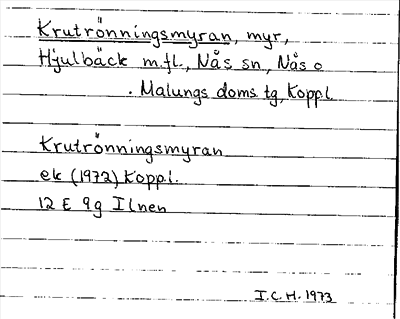 Krutrönningsmyran, myr,
Hjulbäck m.fl., Nås sn, Nås o
. Malungs doms.tg, Koppl.
Krutrönningsmyran
ek (1972) Koppl.
12 E 9g Ilnen
I.C.H. 1973